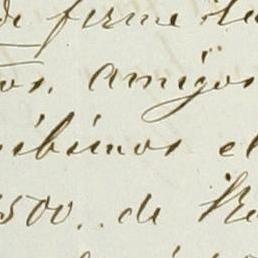 de firme
os. amigos
ibimos el
500.. de